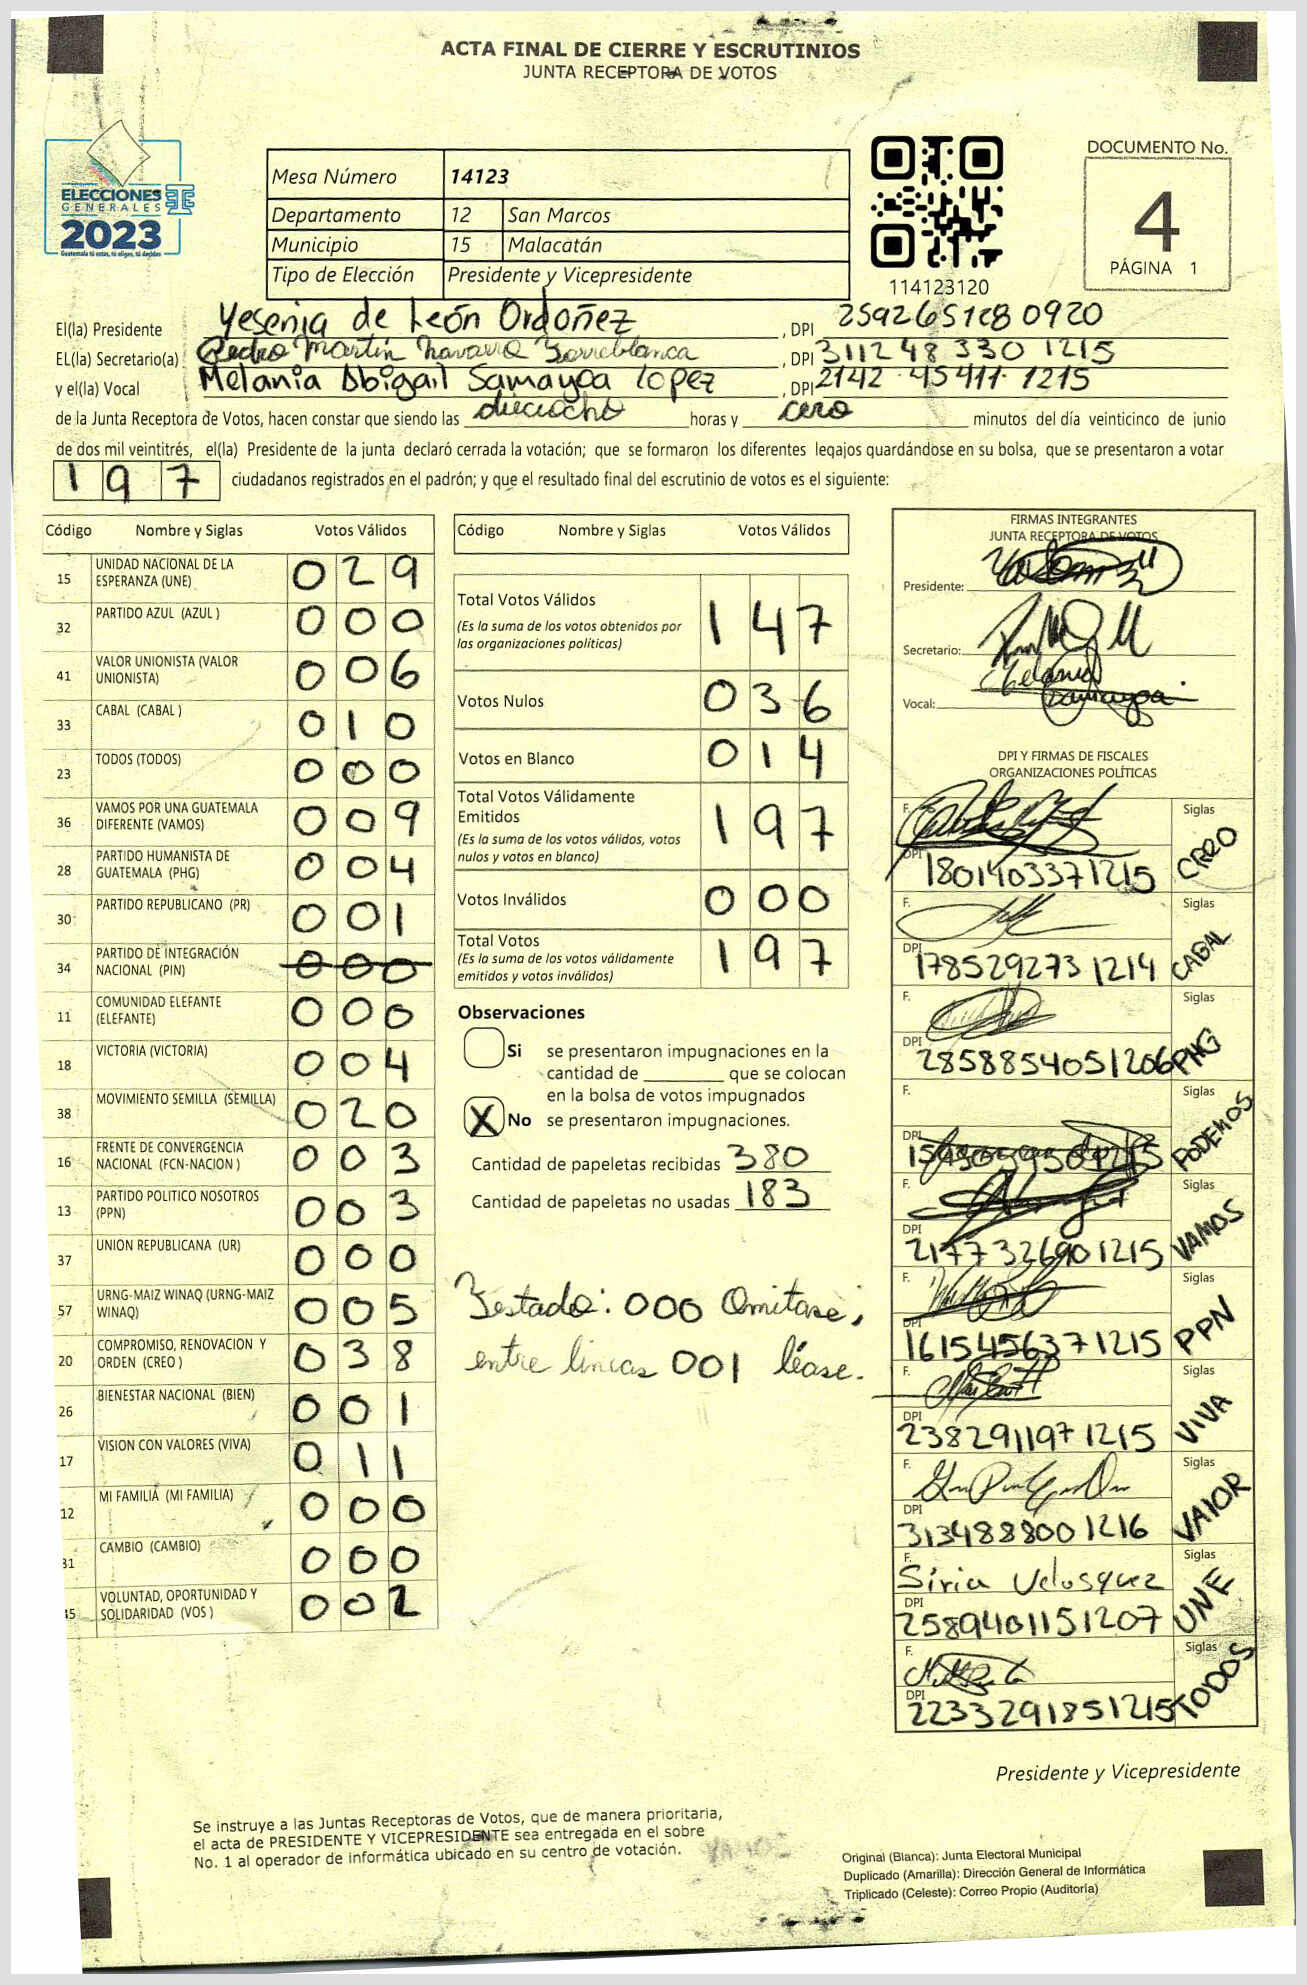 ACTA FINAL DE CIERRE Y ESCRUTINIOS
JUNTA RECEPTORA DE VOTOS
ELECCIONES
GENERALES
2023
Guatemala tú estas, tú eliges, tú decides
Mesa Número 14123
Departamento 12 San Marcos
Municipio 15 Malacatán
Tipo de Elección Presidente y Vicepresidente
114123120
DOCUMENTO No.
4
PÁGINA 1
El(la) Presidente Yesenia de León Ordoñez, DPI 2592651280920
EL(la) Secretario(a) Pedro Martín Navarro Torreblanca, DPI 311248330 1215
y el(la) Vocal Melania Abigail Samayoa Lopez, DPI 2142 45411 1215
de la Junta Receptora de Votos, hacen constar que siendo las dieciocho horas y cero minutos del día veinticinco de junio
de dos mil veintitrés, el(la) Presidente de la junta declaró cerrada la votación; que se formaron los diferentes legajos guardándose en su bolsa, que se presentaron a votar
197 ciudadanos registrados en el padrón; y que el resultado final del escrutinio de votos es el siguiente:
Código Nombre y Siglas Votos Válidos
15 UNIDAD NACIONAL DE LA ESPERANZA (UNE) 029
32 PARTIDO AZUL (AZUL ) 000
41 VALOR UNIONISTA (VALOR UNIONISTA) 006
33 CABAL (CABAL ) 010
23 TODOS (TODOS) 000
36 VAMOS POR UNA GUATEMALA DIFERENTE (VAMOS) 009
28 PARTIDO HUMANISTA DE GUATEMALA (PHG) 004
30 PARTIDO REPUBLICANO (PR) 001
34 PARTIDO DE INTEGRACIÓN NACIONAL (PIN) 000
11 COMUNIDAD ELEFANTE (ELEFANTE) 000
18 VICTORIA (VICTORIA) 004
38 MOVIMIENTO SEMILLA (SEMILLA) 020
16 FRENTE DE CONVERGENCIA NACIONAL (FCN-NACION ) 003
13 PARTIDO POLITICO NOSOTROS (PPN) 003
37 UNION REPUBLICANA (UR) 000
57 URNG-MAIZ WINAQ (URNG-MAIZ WINAQ) 005
20 COMPROMISO, RENOVACION Y ORDEN (CREO ) 038
26 BIENESTAR NACIONAL (BIEN) 001
17 VISION CON VALORES (VIVA) 011
12 MI FAMILIA (MI FAMILIA) 000
31 CAMBIO (CAMBIO) 000
45 VOLUNTAD, OPORTUNIDAD Y SOLIDARIDAD (VOS ) 002
Código Nombre y Siglas Votos Válidos
Total Votos Válidos 147
(Es la suma de los votos obtenidos por
las organizaciones políticas)
Votos Nulos 036
Votos en Blanco 014
Total Votos Válidamente
Emitidos 197
(Es la suma de los votos válidos, votos
nulos y votos en blanco)
Votos Inválidos 000
Total Votos 197
(Es la suma de los votos válidamente
emitidos y votos inválidos)
Observaciones
Si se presentaron impugnaciones en la
cantidad de ________ que se colocan
en la bolsa de votos impugnados
X No se presentaron impugnaciones.
Cantidad de papeletas recibidas 380
Cantidad de papeletas no usadas 183
Testado: 000 Omitase;
entre lineas 001 léase.
FIRMAS INTEGRANTES
JUNTA RECEPTORA DE VOTOS
Presidente:
Secretario:
Vocal: Melania Samayoa
DPI Y FIRMAS DE FISCALES
ORGANIZACIONES POLÍTICAS
F. Siglas
DPI 1801403371215 CREO
F. Siglas
DPI 178529273 1214 CABAL
F. Siglas
DPI 2858854051206 PHG
F. Siglas
DPI PODEMOS
F. Siglas
DPI 2177326901215 VAMOS
F. Siglas
DPI 1615456371215 PPN
F. Siglas
DPI 2382911971215 VIVA
F. Siglas
DPI 3134888001216 VALOR
F. Siria Velasquez Siglas
DPI 2589401151207 UNE
F. Siglas
DPI 2233291851215 TODOS
Presidente y Vicepresidente
Se instruye a las Juntas Receptoras de Votos, que de manera prioritaria,
el acta de PRESIDENTE Y VICEPRESIDENTE sea entregada en el sobre
No. 1 al operador de informática ubicado en su centro de votación.
Original (Blanca): Junta Electoral Municipal
Duplicado (Amarilla): Dirección General de Informática
Triplicado (Celeste): Correo Propio (Auditoría)